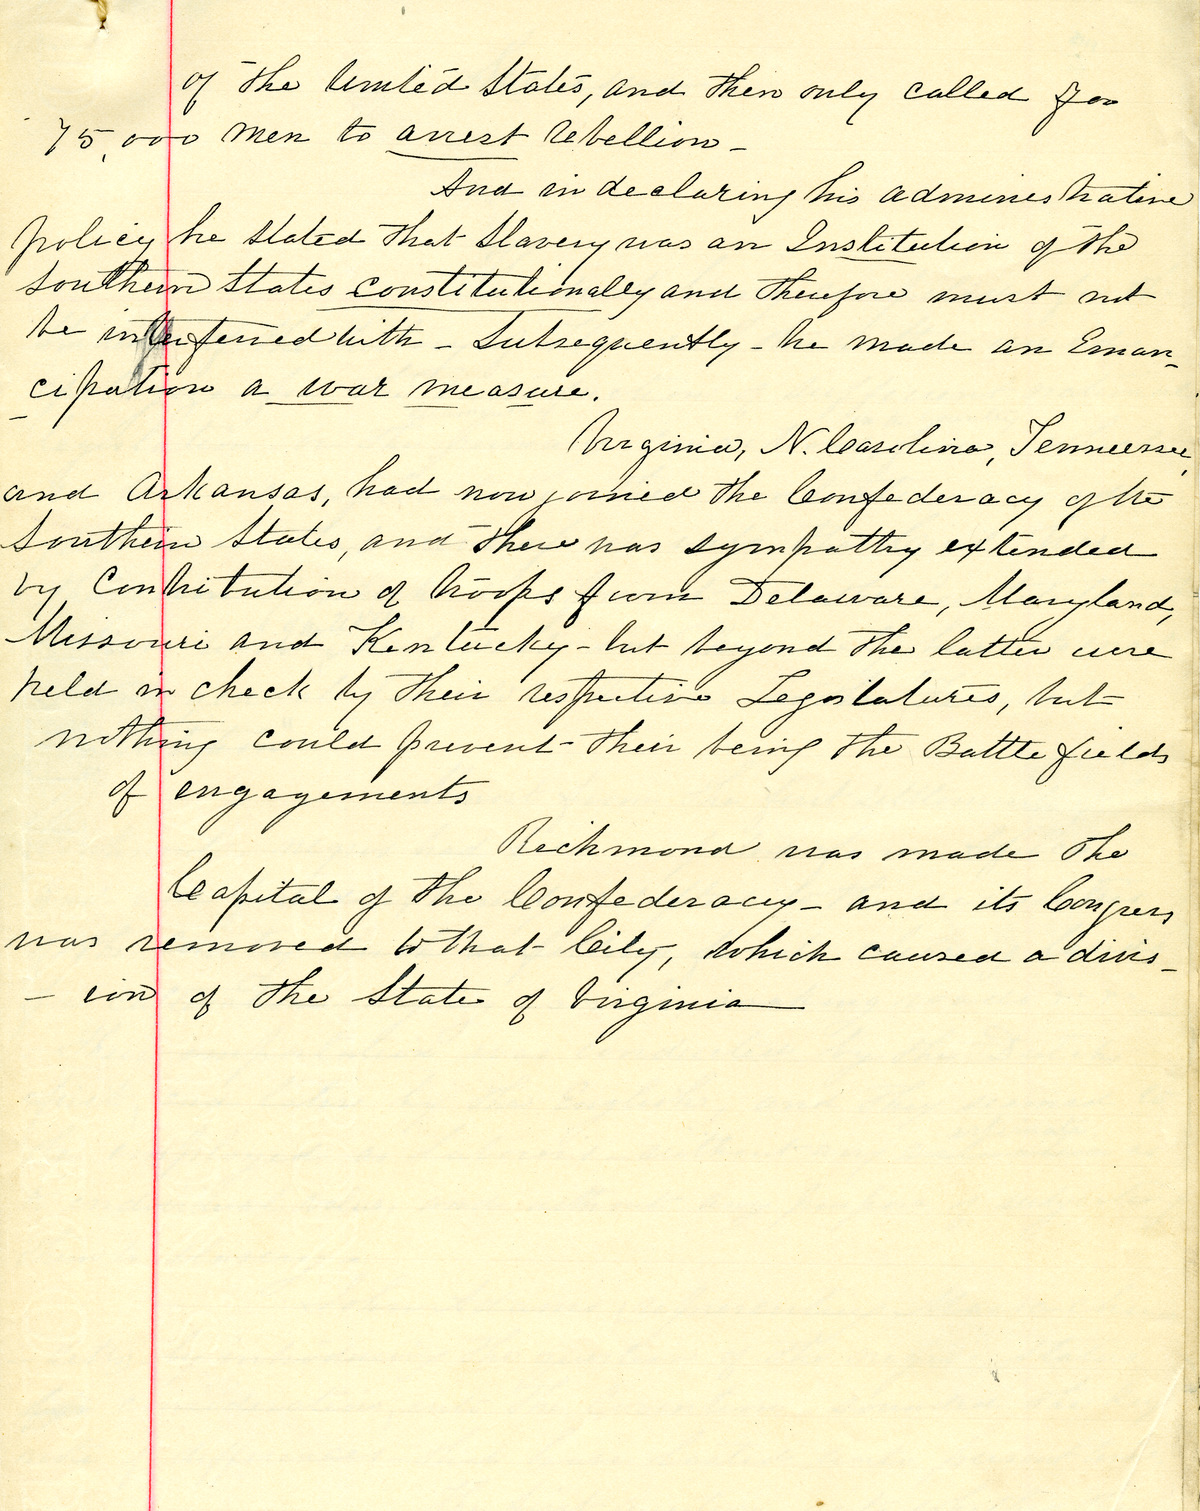 of the United States, and then only called for
75,000 men to arrest Rebellion -
And in declaring his administrative
policy he stated that Slavery was an Institution of the
Southern States constitutionally and therefore must not
be interferred with - Subsequently - he made an Eman-
cipation a war measure.
Virginia, N. Carolina, Tennessee,
and Arkansas, had now joined the Confederacy of the
Southern States, and there was sympathy extended
by Contribution of troops from Delaware, Maryland,
Missouri and Kentucky - but beyond the latter were
held in check by their respective Legislatures, but
nothing could prevent their being the Battle fields
of engagements
Richmond was made the
Capital of the Confederacy - and its Congress
was removed to that City, which caused a divis-
- ion of the State of Virginia